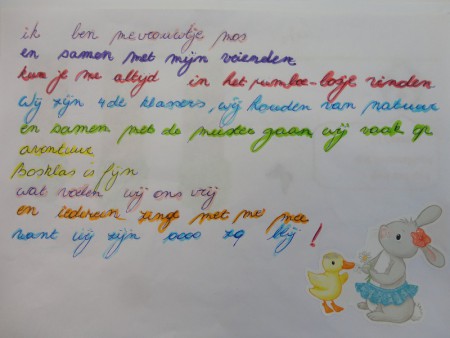 ik ben mevrouwtje mos
en samen met mijn vrienden
kun je me altyd in het rumboe-bosje vinden
Wij zijn 4de klassers, wij houden van natuur
en samen met de meester gaan wij vaak op
avontuur
Bosklas is fijn
wat voelen wij ons vrij
en iedereen zingt met me mee
want wij zijn oooo zo blij!